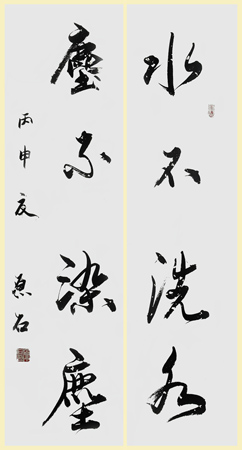 水不洗水
塵不染塵
丙申夏
石